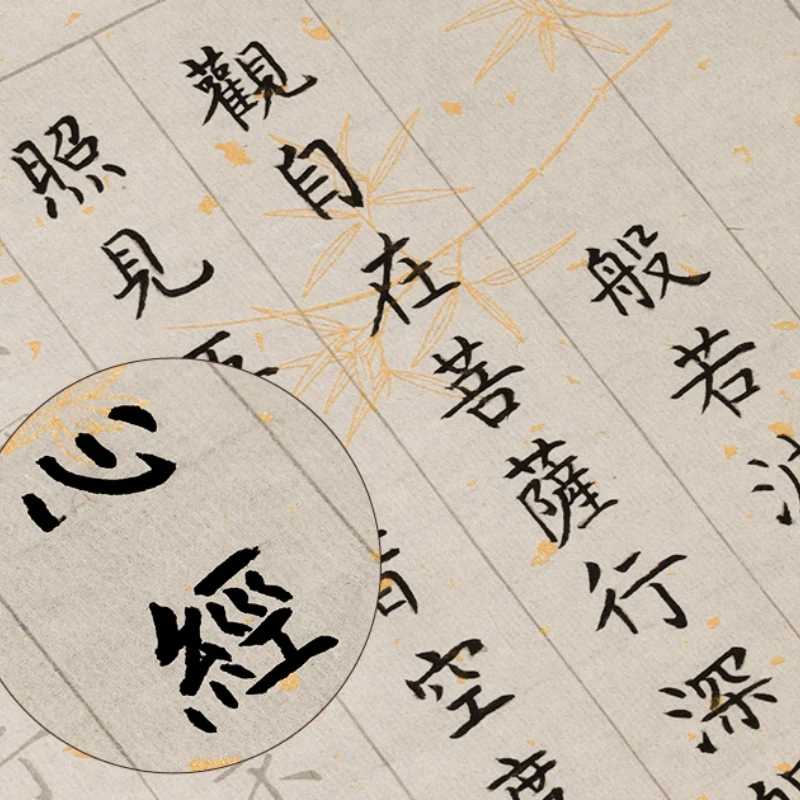 般若
觀自在菩薩行深
照見
空度
心經